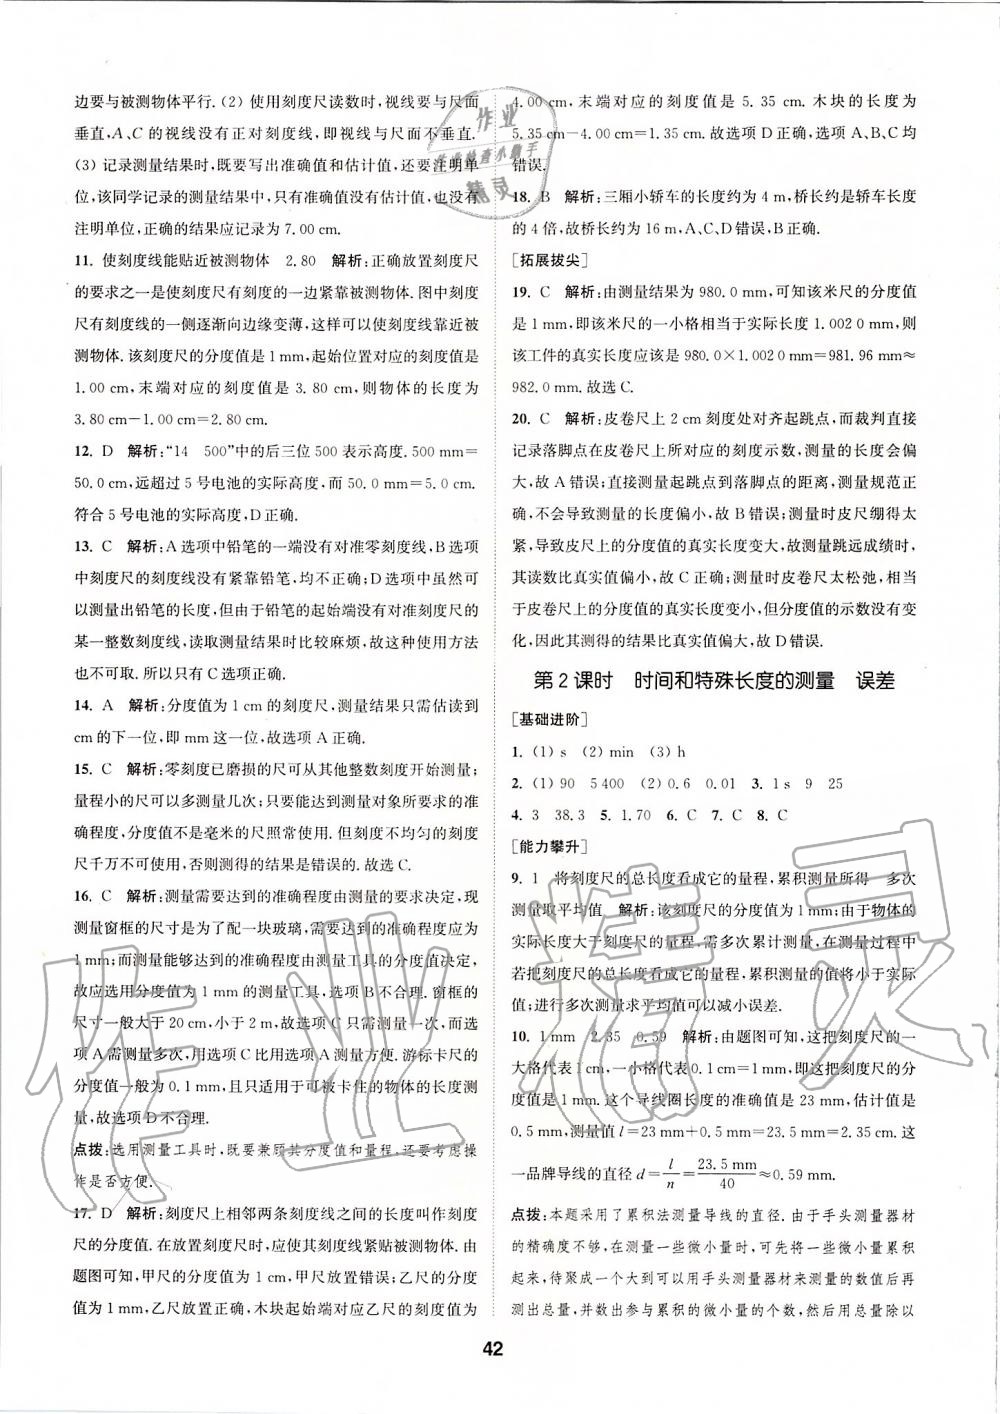 边要与被测物体平行.(2) 使用刻度尺读数时,视线要与尺面
垂直,A、C的视线没有正对刻度线,即视线与尺面不垂直.
(3) 记录测量结果时,既要写出准确值和估计值,还要注明单
位,该同学记录的测量结果中,只有准确值没有估计值,也没有
注明单位,正确的结果应记录为7.00 cm.
11. 使刻度线能贴近被测物体 2.80 解析:正确放置刻度尺
的要求之一是使刻度尺有刻度的一边紧靠被测物体.图中刻度
尺有刻度线的一侧逐渐向边缘变薄,这样可以使刻度线靠近被
测物体.该刻度尺的分度值是1 mm,起始位置对应的刻度值是
1.00 cm,末端对应的刻度值是3.80 cm,则物体的长度为
3.80 cm-1.00 cm=2.80 cm.
12. D 解析:“14 500”中的后三位500表示高度,500 mm=
50.0 cm,远超过5号电池的实际高度,而50.0 mm=5.0 cm.
符合5号电池的实际高度,D正确.
13. C 解析:A选项中铅笔的一端没有对准零刻度线,B选项
中刻度尺的刻度线没有紧靠铅笔,均不正确;D选项中虽然可
以测量出铅笔的长度,但由于铅笔的起始端没有对准刻度尺的
某一整数刻度线,读取测量结果时比较麻烦,故这种使用方法
也不可取.所以只有C选项正确.
14. A 解析:分度值为1 cm的刻度尺,测量结果只需估读到
cm的下一位,即mm这一位,故选项A正确.
15. C 解析:零刻度已磨损的尺可从其他整数刻度开始测量;
量程小的尺可以多测量几次;只要能达到测量对象所要求的准
确程度,分度值不是毫米的尺照常使用.但刻度不均匀的刻度
尺千万不可使用,否则测得的结果是错误的.故选C.
16. C 解析:测量需要达到的准确程度由测量的要求决定,现
测量窗框的尺寸是为了配一块玻璃,需要的准确程度应为
1 mm;而测量能够达到的准确程度由测量工具的分度值决定,
故应选用分度值为1 mm的测量工具,选项B不合理.窗框的
尺寸一般大于20 cm,小于2 m,故选项C只需测量一次,而选
项A需测量多次,用选项C比用选项A测量方便.游标卡尺的
分度值一般为0.1 mm,且只适用于可被卡住的物体的长度测
量,故选项D不合理.
点拨:选用测量工具时,既要兼顾其分度值和量程,还要考虑操
作是否方便.
17. D 解析:刻度尺上相邻两条刻度线之间的长度叫作刻度
尺的分度值.在放置刻度尺时,应使其刻度线紧贴被测物体.由
题图可知,甲尺的分度值为1 cm,甲尺放置错误;乙尺的分度
值为1 mm,乙尺放置正确,木块起始端对应乙尺的刻度值为
4.00 cm,末端对应的刻度值是5.35 cm.木块的长度为
5.35 cm-4.00 cm=1.35 cm.故选项D正确,选项A、B、C均
错误.
18. B 解析:三厢小轿车的长度约为4 m,桥长约是轿车长度
的4倍,故桥长约为16 m,A、C、D错误,B正确.
[拓展拔尖]
19. C 解析:由测量结果为980.0 mm,可知该米尺的分度值
是1 mm,即该米尺的一小格相当于实际长度1.002 0 mm,则
该工件的真实长度应该是980.0×1.002 0 mm=981.96 mm≈
982.0 mm.故选C.
20. C 解析:皮卷尺上2 cm刻度处对齐起跳点,而裁判直接
记录落脚点在皮卷尺上所对应的刻度示数,测量的长度会偏
大,故A错误;直接测量起跳点到落脚点的距离,测量规范正
确,不会导致测量的长度偏小,故B错误;测量时皮尺绷得太
紧,导致皮尺上的分度值的真实长度变大,故测量跳远成绩时,
其读数比真实值偏小,故C正确;测量时皮卷尺太松弛,相当
于皮卷尺上的分度值的真实长度变小,但分度值的示数没有变
化,因此其测得的结果比真实值偏大,故D错误.
第2课时 时间和特殊长度的测量 误差
[基础进阶]
1. (1) s (2) min (3) h
2. (1) 90 5 400 (2) 0.6 0.01 3. 1 s 9 25
4. 3 38.3 5. 1.70 6. C 7. C 8. C
[能力攀升]
9. 1 将刻度尺的总长度看成它的量程,累积测量所得 多次
测量取平均值 解析:该刻度尺的分度值为1 mm;由于物体的
实际长度大于刻度尺的量程,需多次累计测量,在测量过程中
若把刻度尺的总长度看成它的量程,累积测量的值将小于实际
值;进行多次测量求平均值可以减小误差.
10. 1 mm 2.35 0.59 解析:由题图可知,这把刻度尺的一
大格代表1 cm,一小格代表0.1 cm=1 mm,即这把刻度尺的分
度值是1 mm.这个导线圈长度的准确值是23 mm,估计值是
0.5 mm,测量值l=23 mm+0.5 mm=23.5 mm=2.35 cm.这
一品牌导线的直径d=l/n=23.5 mm/40≈0.59 mm.
点拨:本题采用了累积法测量导线的直径.由于手头测量器材
的精确度不够,在测量一些微小量时,可先将一些微小量累积
起来,待聚成一个大到可以用手头测量器材来测量的数值后再
测出总量,并数出参与累积的微小量的个数,然后用总量除以
42
作业
作业检查小帮手
精灵
作业精灵